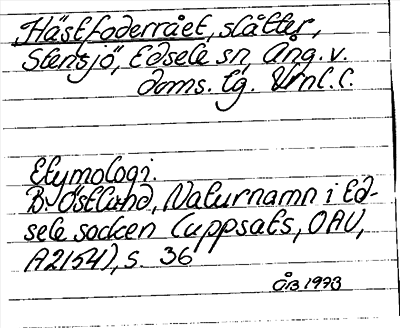 Hästfoderrået, slåtter,
Stensjö, Edsele sn, Ång. v.
doms. tg. Vrnl. l.
Etymologi.
B. Östlund, Naturnamn i Ed-
sele socken (uppsats, OAU,
A2154), s. 36
ÅB 1973